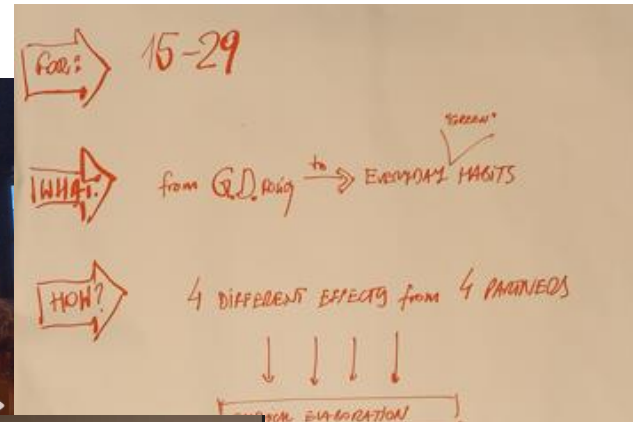 FOR: 15-29
"GREEN"
WHAT: from G.D. to EVERYDAY HABITS
HOW? 4 DIFFERENT EFFECTS from 4 PARTNERS
ELABORATION